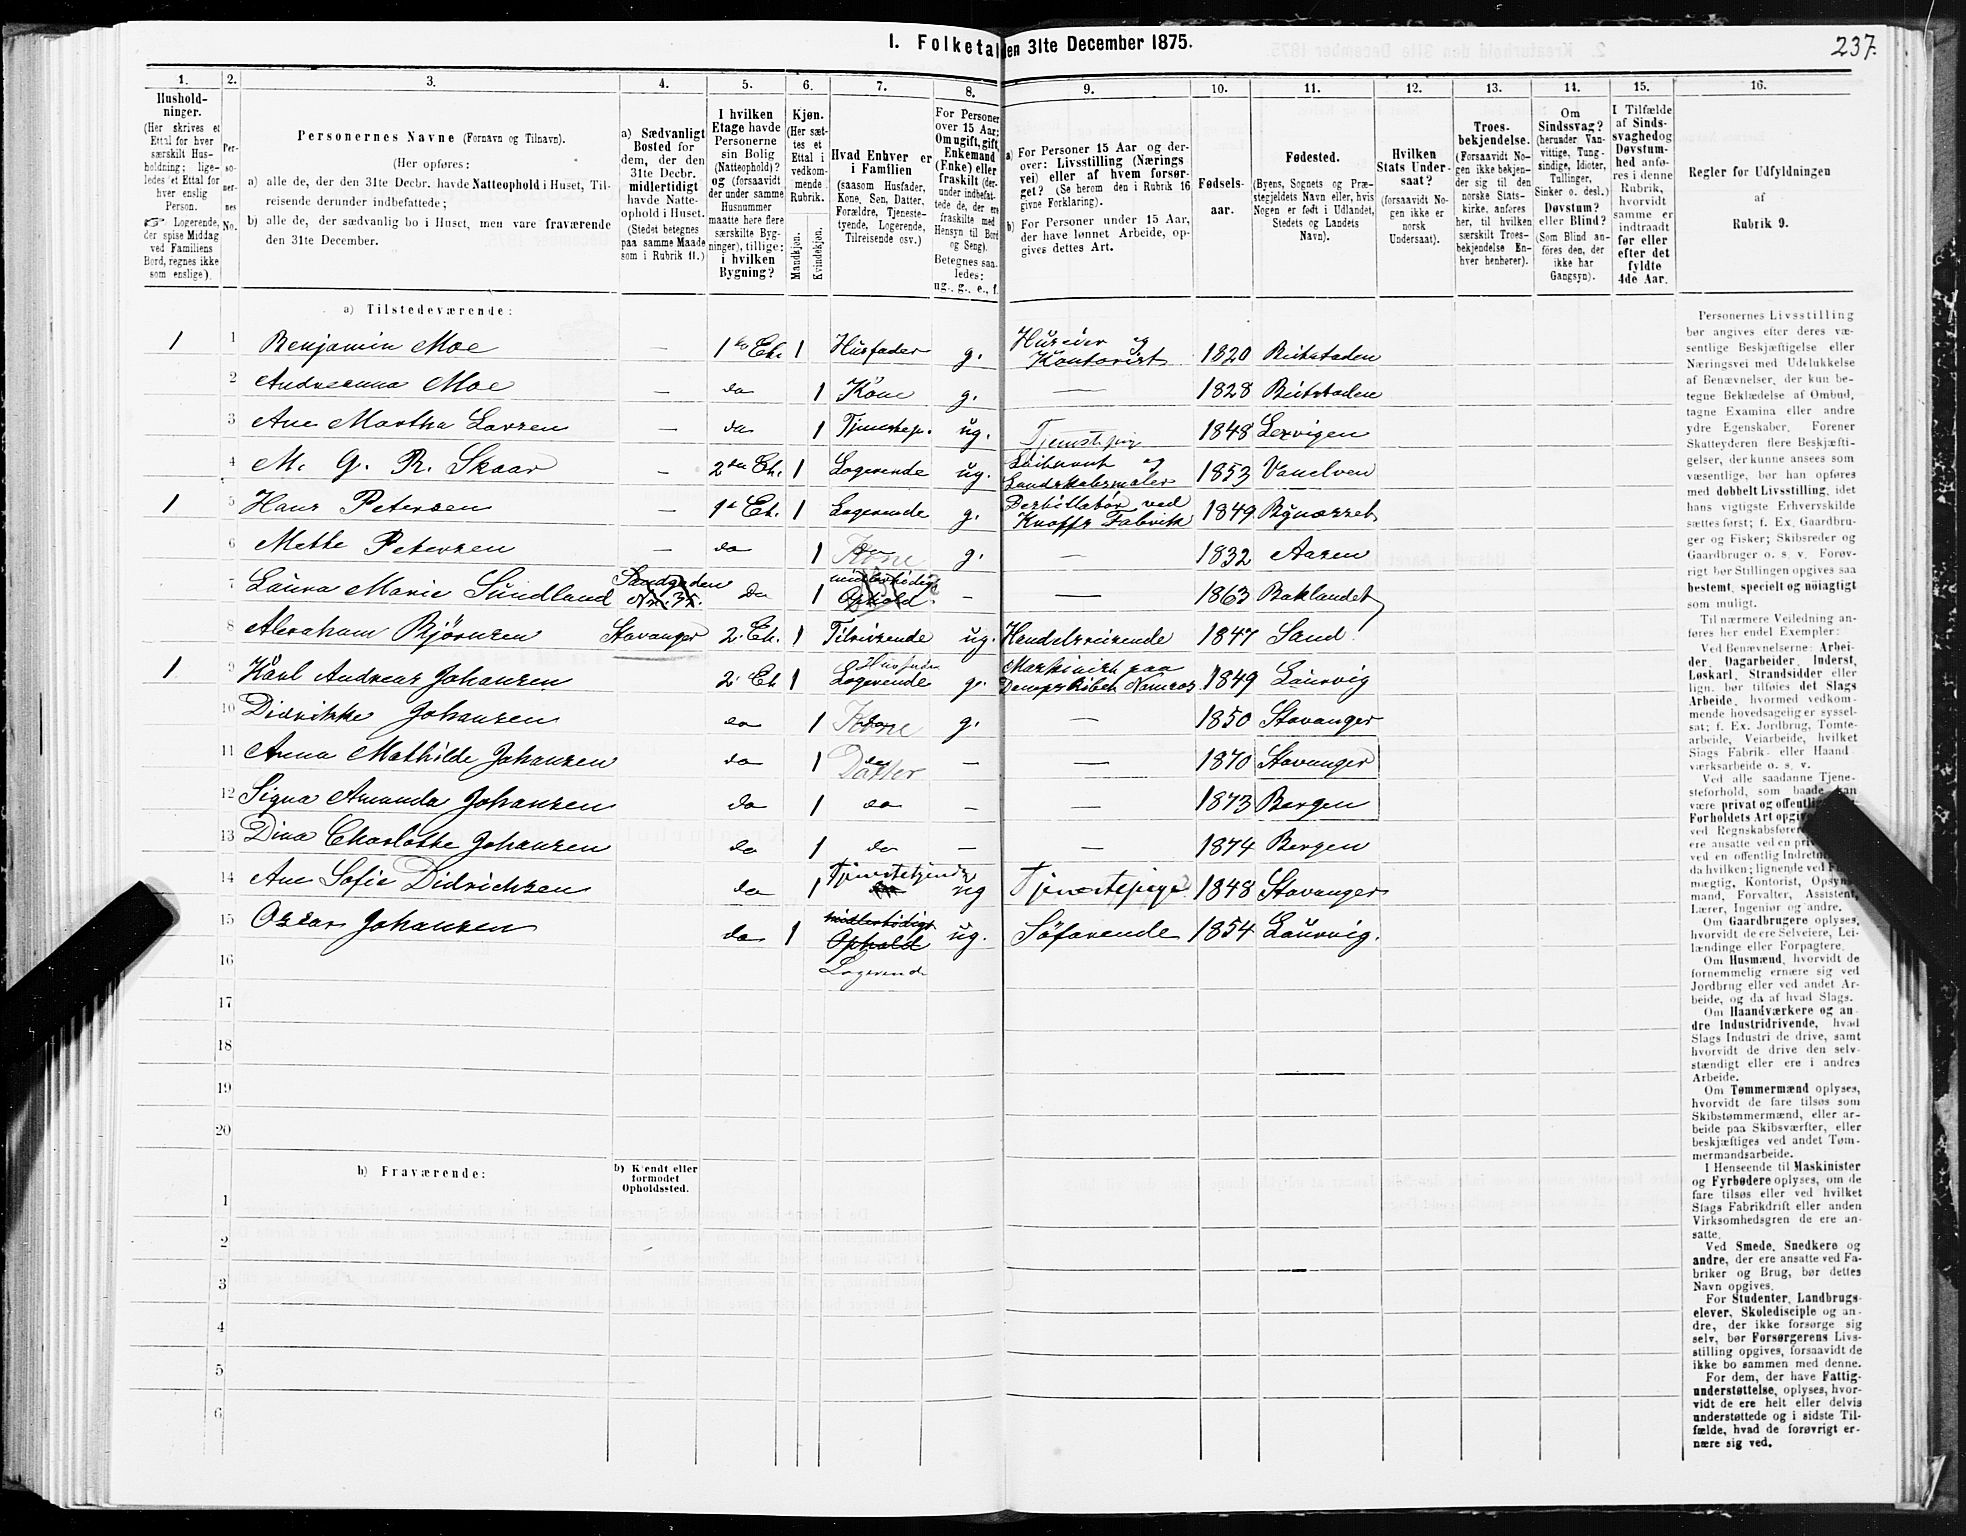 237.
1. Folketal den 31te December 1875.
1. 2. 3. 4. 5. 6. 7. 8. 9. 10. 11. 12. 13. 14. 15. 16.
Husholdninger.
(Her skrives et
Ettal for hver
særskilt Husholdning; ligeledes et Ettal for
hver enslig
Person.
☞ Logerende,
der spise Middag
ved Familiens
Bord, regnes ikke
som enslige).
Personernes No.
Personernes Navne (Fornavn og Tilnavn).
(Her opføres:
a) alle de, der den 31te Decbr. havde Natteophold i Huset, Tilreisende derunder indbefattede;
b) alle de, der sædvanlig bo i Huset, men vare fraværende
den 31te December.
a) Sædvanligt
Bosted for
dem, der den
31te Decbr.
midlertidigt
havde Natteophold i Huset.
(Stedet betegnes
paa samme Maade
som i Rubrik 11.)
I hvilken
Etage havde
Personerne
sin Bolig
(Natteophold)?
og (forsaavidt
der under samme
Husnummer
maatte høre flere
særskilte Bygninger), tillige:
i hvilken
Bygning?
Kjøn.
(Her sættes et
Ettal i
vedkommende
Rubrik.
Mandkjøn.
Kvindekjøn.
Hvad Enhver er
i Familien
(saasom Husfader,
Kone, Søn, Datter,
Forældre, Tjenestetyende, Logerende,
Tilreisende osv.)
For Personer
over 15 Aar:
Om ugift, gift,
Enkemand
(Enke) eller
fraskilt (derunder indbefattede de, der ere
fraskilte med
Hensyn til Bord
og Seng).
Betegnes saaledes:
ug., g., e., f.
a) For Personer 15 Aar og derover: Livsstilling (Næringsvei) eller af hvem forsørget? (Se herom den i Rubrik 16
givne Forklaring).
b) For Personer under 15 Aar,
der have lønnet Arbeide, opgives dettes Art.
Fødselsaar.
Fødested.
(Byens, Sognets og Præstegjeldets Navn eller, hvis
Nogen er født i Udlandet,
Stedets og Landets
Navn).
Hvilken
Stats Undersaat?
(forsaavidt Nogen ikke er
norsk
Undersaat).
Troesbekjendelse.
(Forsaavidt Nogen ikke bekjender sig til den
norske Statskirke, anføres
her, til hvilket
særskilt Troesbekjendelse Enhver henhører).
Om
Sindssvag?
(herunder Vanvittige, Tungsindige, Idioter,
Tullinger,
Sinker o. desl.)
Døvstum?
eller Blind?
(Som Blind anføres den, der
ikke har
Gangsyn).
I Tilfælde
af Sindssvaghed og
Døvstumhed anføres i denne
Rubrik,
hvorvidt
samme er
indtraadt
før eller
efter det
fyldte
4de Aar.
Regler for Udfyldningen
af
Rubrik 9.
a) Tilstedeværende:
1 1 Benjamin Moe — 1ste Et. 1 Husfader g. Huseier og Kontorist 1820 Beitstaden
2 Andreanna Moe — do 1 Kone g. — 1828 Beitstaden
3 Ane Martha Larsen — do 1 Tjenestep. ug. Tjenestepige 1848 Lexvigen
4 M. G. R. Skaar — 2den Et. 1 Logerende ug. Landskabsmaler 1853 Vanelven
1 5 Hans Petersen — 1ste Et. 1 Logerende g. Destillatør ved Knoffs Fabrik 1849 Bynæsset
6 Mette Petersen — do 1 do Kone g. — 1832 Aasen
7 Laura Marie Sundland Sandgaden No. 35. do 1 midlertidigt Ophold. — — 1863 Baklandet
8 Abraham Bjørnsen Stavanger 2. Et. 1 Tilreisende ug. Handelsreisende 1847 Sand!
1 9 Karl Andreas Johansen 2. Et 1 Husfader Logerende g. Maskinist paa Dampskibet Namsos 1849 Laurvig
10 Didrikke Johansen do 1 do Kone g. — 1850 Stavanger
11 Anna Mathilde Johansen do 1 do Datter — — 1870 Stavanger
12 Signa Amanda Johansen do 1 do — — 1873 Bergen
13 Dina Charlotte Johansen do 1 do — — 1874 Bergen
14 Ane Sofie Didrichsen do 1 Tjenestetyende ug Tjenestepige 1848 Stavanger
15 Oscar Johansen do 1 midlertidigt Ophold Logerende ug. Søfarende 1854 Laurvig.
16
17
18
19
20
b) Fraværende:
b) Kjendt eller
formodet
Opholdssted.
1
2
3
4
5
6
Personernes Livsstilling
bør angives efter deres væsentlige Beskjæftigelse eller
Næringsvei med Udelukkelse
af Benævnelser, der kun betegne Beklædelse af Ombud,
tagne Examina eller andre
ydre Egenskaber. Forener
Skatteyderen flere Beskjæftigelser, der kunne ansees som
væsentlige, bør han opføres
med dobbelt Livsstilling, idet
hans vigtigste Erhvervskilde
sættes først; f. Ex. Gaardbruger og Fisker; Skibsreder og
Gaardbruger o. s. v. Forøvrigt bør Stillingen opgives saa
bestemt, specielt og nøiagtigt
som muligt.
Til nærmere Veiledning anføres her endel Exempler:
Ved Benævnelserne: Arbeider, Dagarbeider, Inderst,
Løskarl, Strandsidder eller
lign. bør tilføies det Slags
Arbeide, hvormed vedkommende hovedsagelig er sysselsat; f. Ex. Jordbrug, Tomtearbeide, Veiarbeide, hvilket
Slags Fabrik- eller Haandværksarbeide o. s. v.
Ved alle saadanne Tjenesteforhold, som baade kan
være privat og offentlig
Forholdets Art opgives
ved Regnskabsfører
ere ansatte ved en
ved en offentlig Indretning
da hvilken; lignende ved
mægtig, Kontorist, Opsynsmand, Forvalter, Assistent,
Lærer, Ingeniør og andre.
Om Gaardbrugere oplyses,
hvorvidt de ere Selveiere, Leilændinge eller Forpagtere.
Om Husmænd, hvorvidt de
fornemmelig ernære sig ved
Jordbrug eller ved andet Arbeide, og da af hvad Slags.
Om Haandværkere og andre Industridrivende, hvad
Slags Industri de drive, samt
hvorvidt de drive den selvstændigt eller ere i andres
Arbeide.
Om Tømmermænd oplyses,
hvorvidt de fare tilsøs som
Skibstømmermænd, eller arbeide paa Skibsværfter, eller
beskjæftiges ved andet Tømmermandsarbeide.
I Henseende til Maskinister
og Fyrbødere oplyses, om de
fare tilsøs eller ved hvilket
Slags Fabrikdrift eller anden
Virksomhedsgren de ere ansatte.
Ved Smede, Snedkere og
andre, der ere ansatte ved Fabriker og Brug, bør dettes
Navn opgives.
For Studenter, Landbrugselever, Skoledisciple og andre, der ikke forsørge sig
selv, bør Forsørgerens Livsstilling opgives, forsaavidt de
ikke bo sammen med denne.
For dem, der have Fattigunderstøttelse, oplyses, hvorvidt de ere helt eller delvis
understøttede og i sidste Tilfælde, hvad de forøvrigt ernære sig ved.